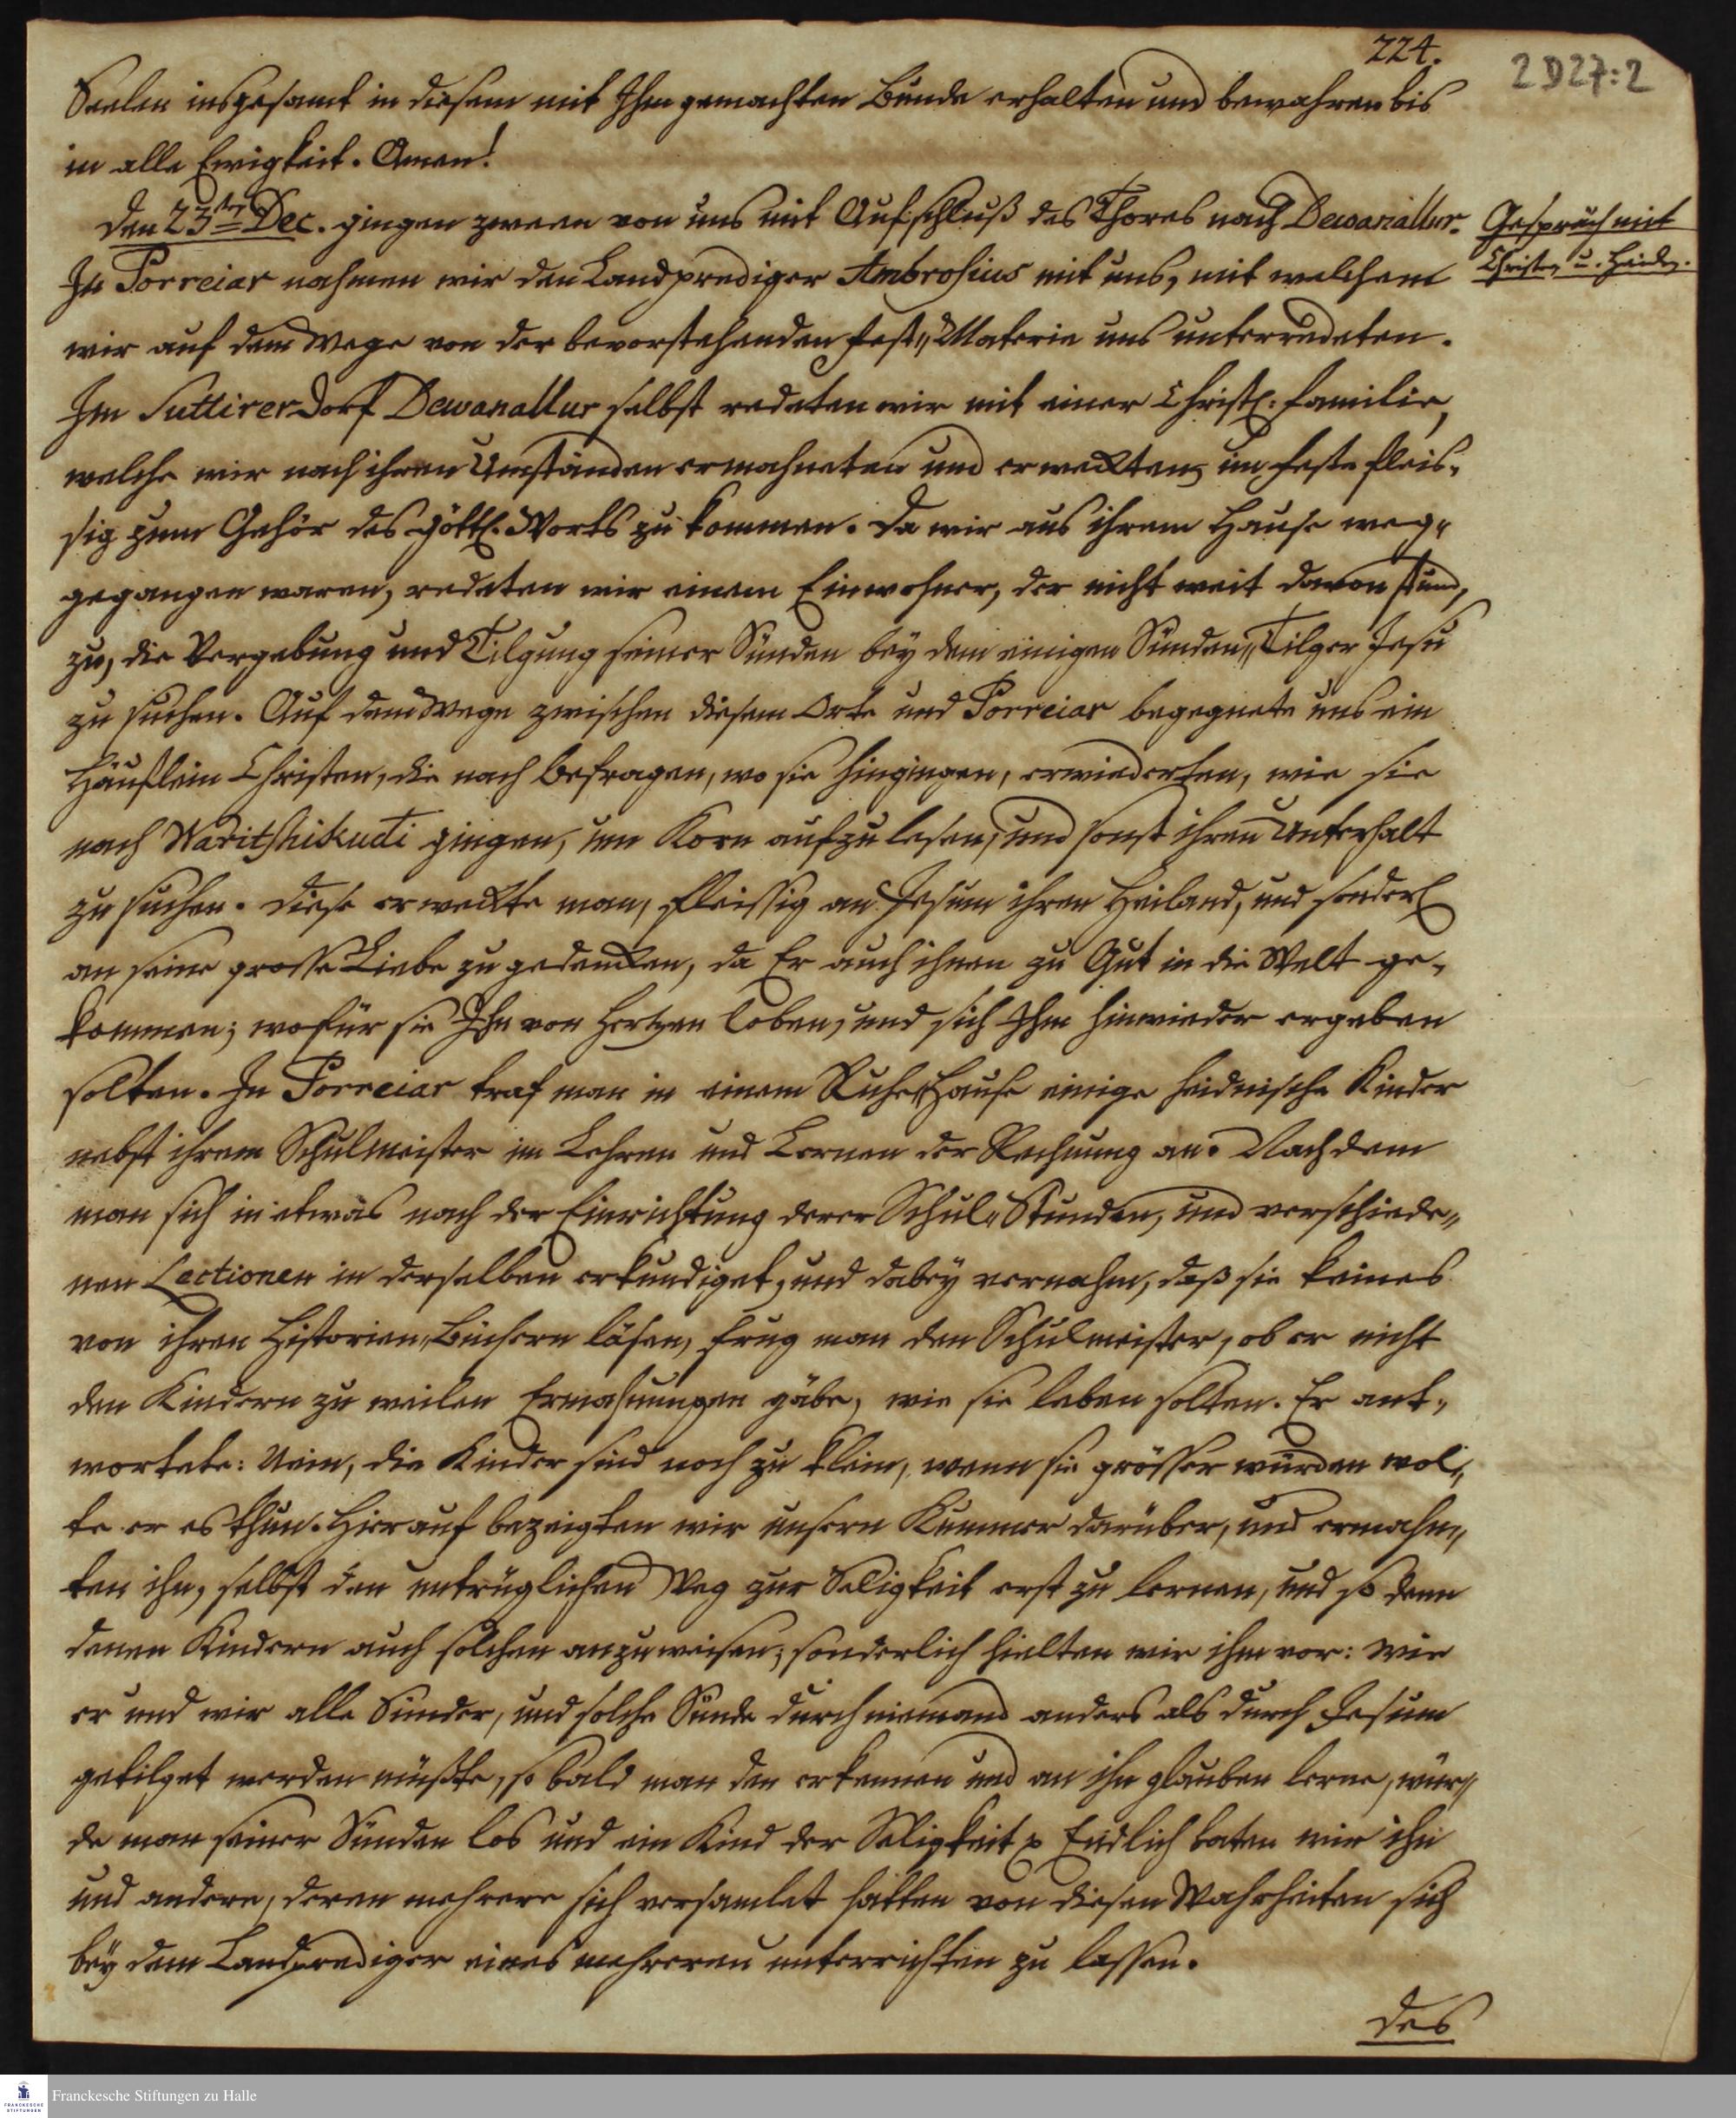 224.
2 D27:2
Seelen insgesamt in diesem mit Ihm gemachten Bunde erhalten und bewahren bis
in alle Ewigkeit. Amen!
Den 23ten Dec. gingen zween von uns mit Aufschluß des Thores nach Dewanallur.
Gespräch mit
Christen u. Heiden.
In Porreiar nahmen wir den Landprediger Ambrosius mit uns, mit welchem
wir auf dem Wege von der bevorstehenden Fest„Materie uns unterredeten.
Im Suttirer Dorf Dewanallur selbst redeten wir mit einer Christl: Familie,
welche wir nach ihren Umständen ermahneten und erweckten, im Feste fleis„
sig zum Gehör des göttl. Worts zu kommen. Da wir aus ihrem Hause weg„
gegangen waren, redeten wir einem Einwohner, der nicht weit davon stund,
zu, die Vergebung und Tilgung seiner Sünden bey dem einigen Sünden„Tilger Jesu
zu suchen. Auf dem Wege zwischen diesem Orte und Porreiar begegnete uns ein
Häuflein Christen, die nach Befragen, wo sie hingingen, erwiederten, wie sie
nach Waritshikudi gingen, um Korn aufzulesen, und sonst ihren Unterhalt
zu suchen. Diese erweckte man, fleissig an Jesum ihren Heiland, und sonderl
an seine grosse Liebe zu gedencken, da Er auch ihnen zu Gut in die Welt ge„
kommen; wofür sie Ihn von Hertzen loben, und sich Ihm hinwieder ergeben
solten. In Porreiar traf man in einem Ruhe„Hause einige heidnische Kinder
nebst ihrem Schulmeister im Lehren und Lernen der Rechnung an. Nachdem
man sich in etwas nach der Einrichtung derer Schul„Stunden, und verschiede„
nen Lectionen in derselben erkundiget, und dabey vernahm, daß sie keines
von ihren Historien„Büchern läsen, frug man den Schulmeister, ob er nicht
den Kindern zu weilen Ermahnungen gäbe, wie sie leben solten. Er ant„
wortete: Nein, die Kinder sind noch zu klein, wenn sie grösser würden wol„
te er es thun. Hierauf bezeigten wir unsern Kummer darüber, und ermahn„
ten ihn, selbst den untrüglichen Weg zur Seligkeit erst zu lernen, und so denn
denen Kindern auch solchen anzuweisen; sonderlich hielten wir ihm vor: wie
er und wir alle Sünder, und solche Sünde durch niemand anders als durch Jesum
getilget werden müßte, so bald man den erkennen und an ihn glauben lerne, wür„
de man seiner Sünden los und ein Kind der Seligkeit p Endlich baten wir ihn
und andere, deren mehrere sich versamlet hatten von diesen Wahrheiten sich
bey dem Landprediger eines mehreren unterrichten zu lassen.
Des
FRANCKESCHE
STIFTUNGEN
Franckesche Stiftungen zu Halle